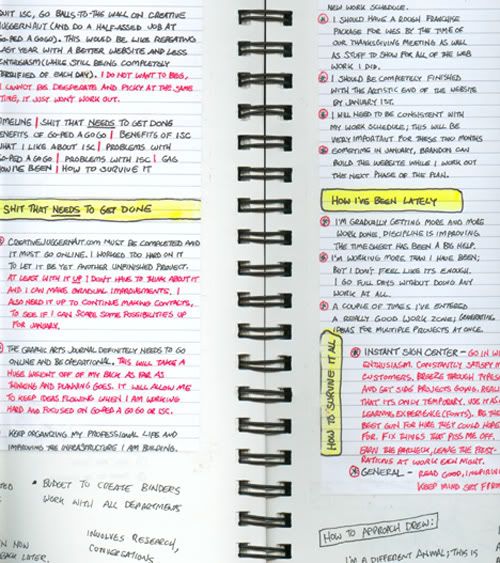 QUIT ISC, GO BALLS TO THE WALL ON CREATIVE
JUGGERNAUT (AND DO A HALF-ASSED JOB AT
GO-PED A GOGO). THIS WOULD BE LIKE REPEATING
LAST YEAR WITH A BETTER WEBSITE AND LESS
ENTHUSIASM (WHILE STILL BEING COMPLETELY
TERRIFIED OF EACH DAY). I DO NOT WANT TO BEG,
I CANNOT BE DESPERATE AND PICKY AT THE SAME
TIME, IT JUST WON'T WORK OUT.
TIMELINE | SHIT THAT NEEDS TO GET DONE
BENEFITS OF GO-PED A GO GO | BENEFITS OF ISC
WHAT I LIKE ABOUT ISC | PROBLEMS WITH
GO-PED A GO GO | PROBLEMS WITH ISC | GAS
HOW I'VE BEEN | HOW TO SURVIVE IT
SHIT THAT NEEDS TO GET DONE
CREATIVEJUGGERNAUT.COM MUST BE COMPLETED AND
IT MUST GO ONLINE. I WORKED TOO HARD ON IT
TO LET IT BE YET ANOTHER UNFINISHED PROJECT.
AT LEAST WITH IT UP I DON'T HAVE TO THINK ABOUT IT
AND I CAN MAKE GRADUAL IMPROVEMENTS. I
ALSO NEED IT UP TO CONTINUE MAKING CONTACTS,
TO SEE IF I CAN SCORE SOME POSSIBILITIES UP
FOR JANUARY.
THE GRAPHIC ARTS JOURNAL DEFINITELY NEEDS TO GO
ONLINE AND BE OPERATIONAL. THIS WILL TAKE A
HUGE WEIGHT OFF OF MY BACK AS FAR AS
THINKING AND PLANNING GOES. IT WILL ALLOW ME
TO KEEP IDEAS FLOWING WHEN I AM WORKING
HARD AND FOCUSED ON GO-PED A GO GO OR ISC.
KEEP ORGANIZING MY PROFESSIONAL LIFE AND
IMPROVING THE INFRASTRUCTURE I AM BUILDING.
* BUDGET TO CREATE BINDERS
WORK WITH ALL DEPARTMENTS
IN NOW
BACK LATER.
INVOLVES RESEARCH,
CONVERSATIONS
NEW WORK SCHEDULE.
I SHOULD HAVE A ROUGH FRANCHISE
PACKAGE FOR WES BY THE TIME OF
OUR THANKSGIVING MEETING AS WELL
AS STUFF TO SHOW FOR ALL OF THE WEB
WORK I DID.
I SHOULD BE COMPLETELY FINISHED
WITH THE ARTISTIC END OF THE WEBSITE
BY JANUARY 1ST.
I WILL NEED TO BE CONSISTENT WITH
MY WORK SCHEDULE; THIS WILL BE
VERY IMPORTANT FOR THESE TWO MONTHS
SOMETIME IN JANUARY, BRANDON CAN
BUILD THE WEBSITE WHILE I WORK OUT
THE NEXT PHASE OF THE PLAN.
HOW I'VE BEEN LATELY
I'M GRADUALLY GETTING MORE AND MORE
WORK DONE. DISCIPLINE IS IMPROVING
THE TIMESHEET HAS BEEN A BIG HELP.
I'M WORKING MORE THAN I HAVE BEEN,
BUT I DON'T FEEL LIKE IT'S ENOUGH.
I GO FULL DAYS WITHOUT DOING ANY
WORK AT ALL.
A COUPLE OF TIMES I'VE ENTERED
A REALLY GOOD WORK ZONE; GENERATING
IDEAS FOR MULTIPLE PROJECTS AT ONCE.
HOW TO SURVIVE IT ALL
INSTANT SIGN CENTER - GO IN WI
ENTHUSIASM. CONSTANTLY SATISFY M
CUSTOMERS, BREEZE THROUGH TYPESE
AND GET SIDE PROJECTS GOING. REALI
THAT IT'S ONLY TEMPORARY. USE IT AS A
LEARNING EXPERIENCE (FONTS). BE THE
BEST GUN FOR HIRE THEY COULD HOPE
FOR. FIX THINGS THAT PISS ME OFF.
EARN THE PAYCHECK, LEAVE THE FRUST-
RATIONS AT WORK EACH NIGHT.
GENERAL - READ GOOD, INSPIRING
KEEP MIND SET FIRM
HOW TO APPROACH DREW:
I'M A DIFFERENT ANIMAL; THIS IS